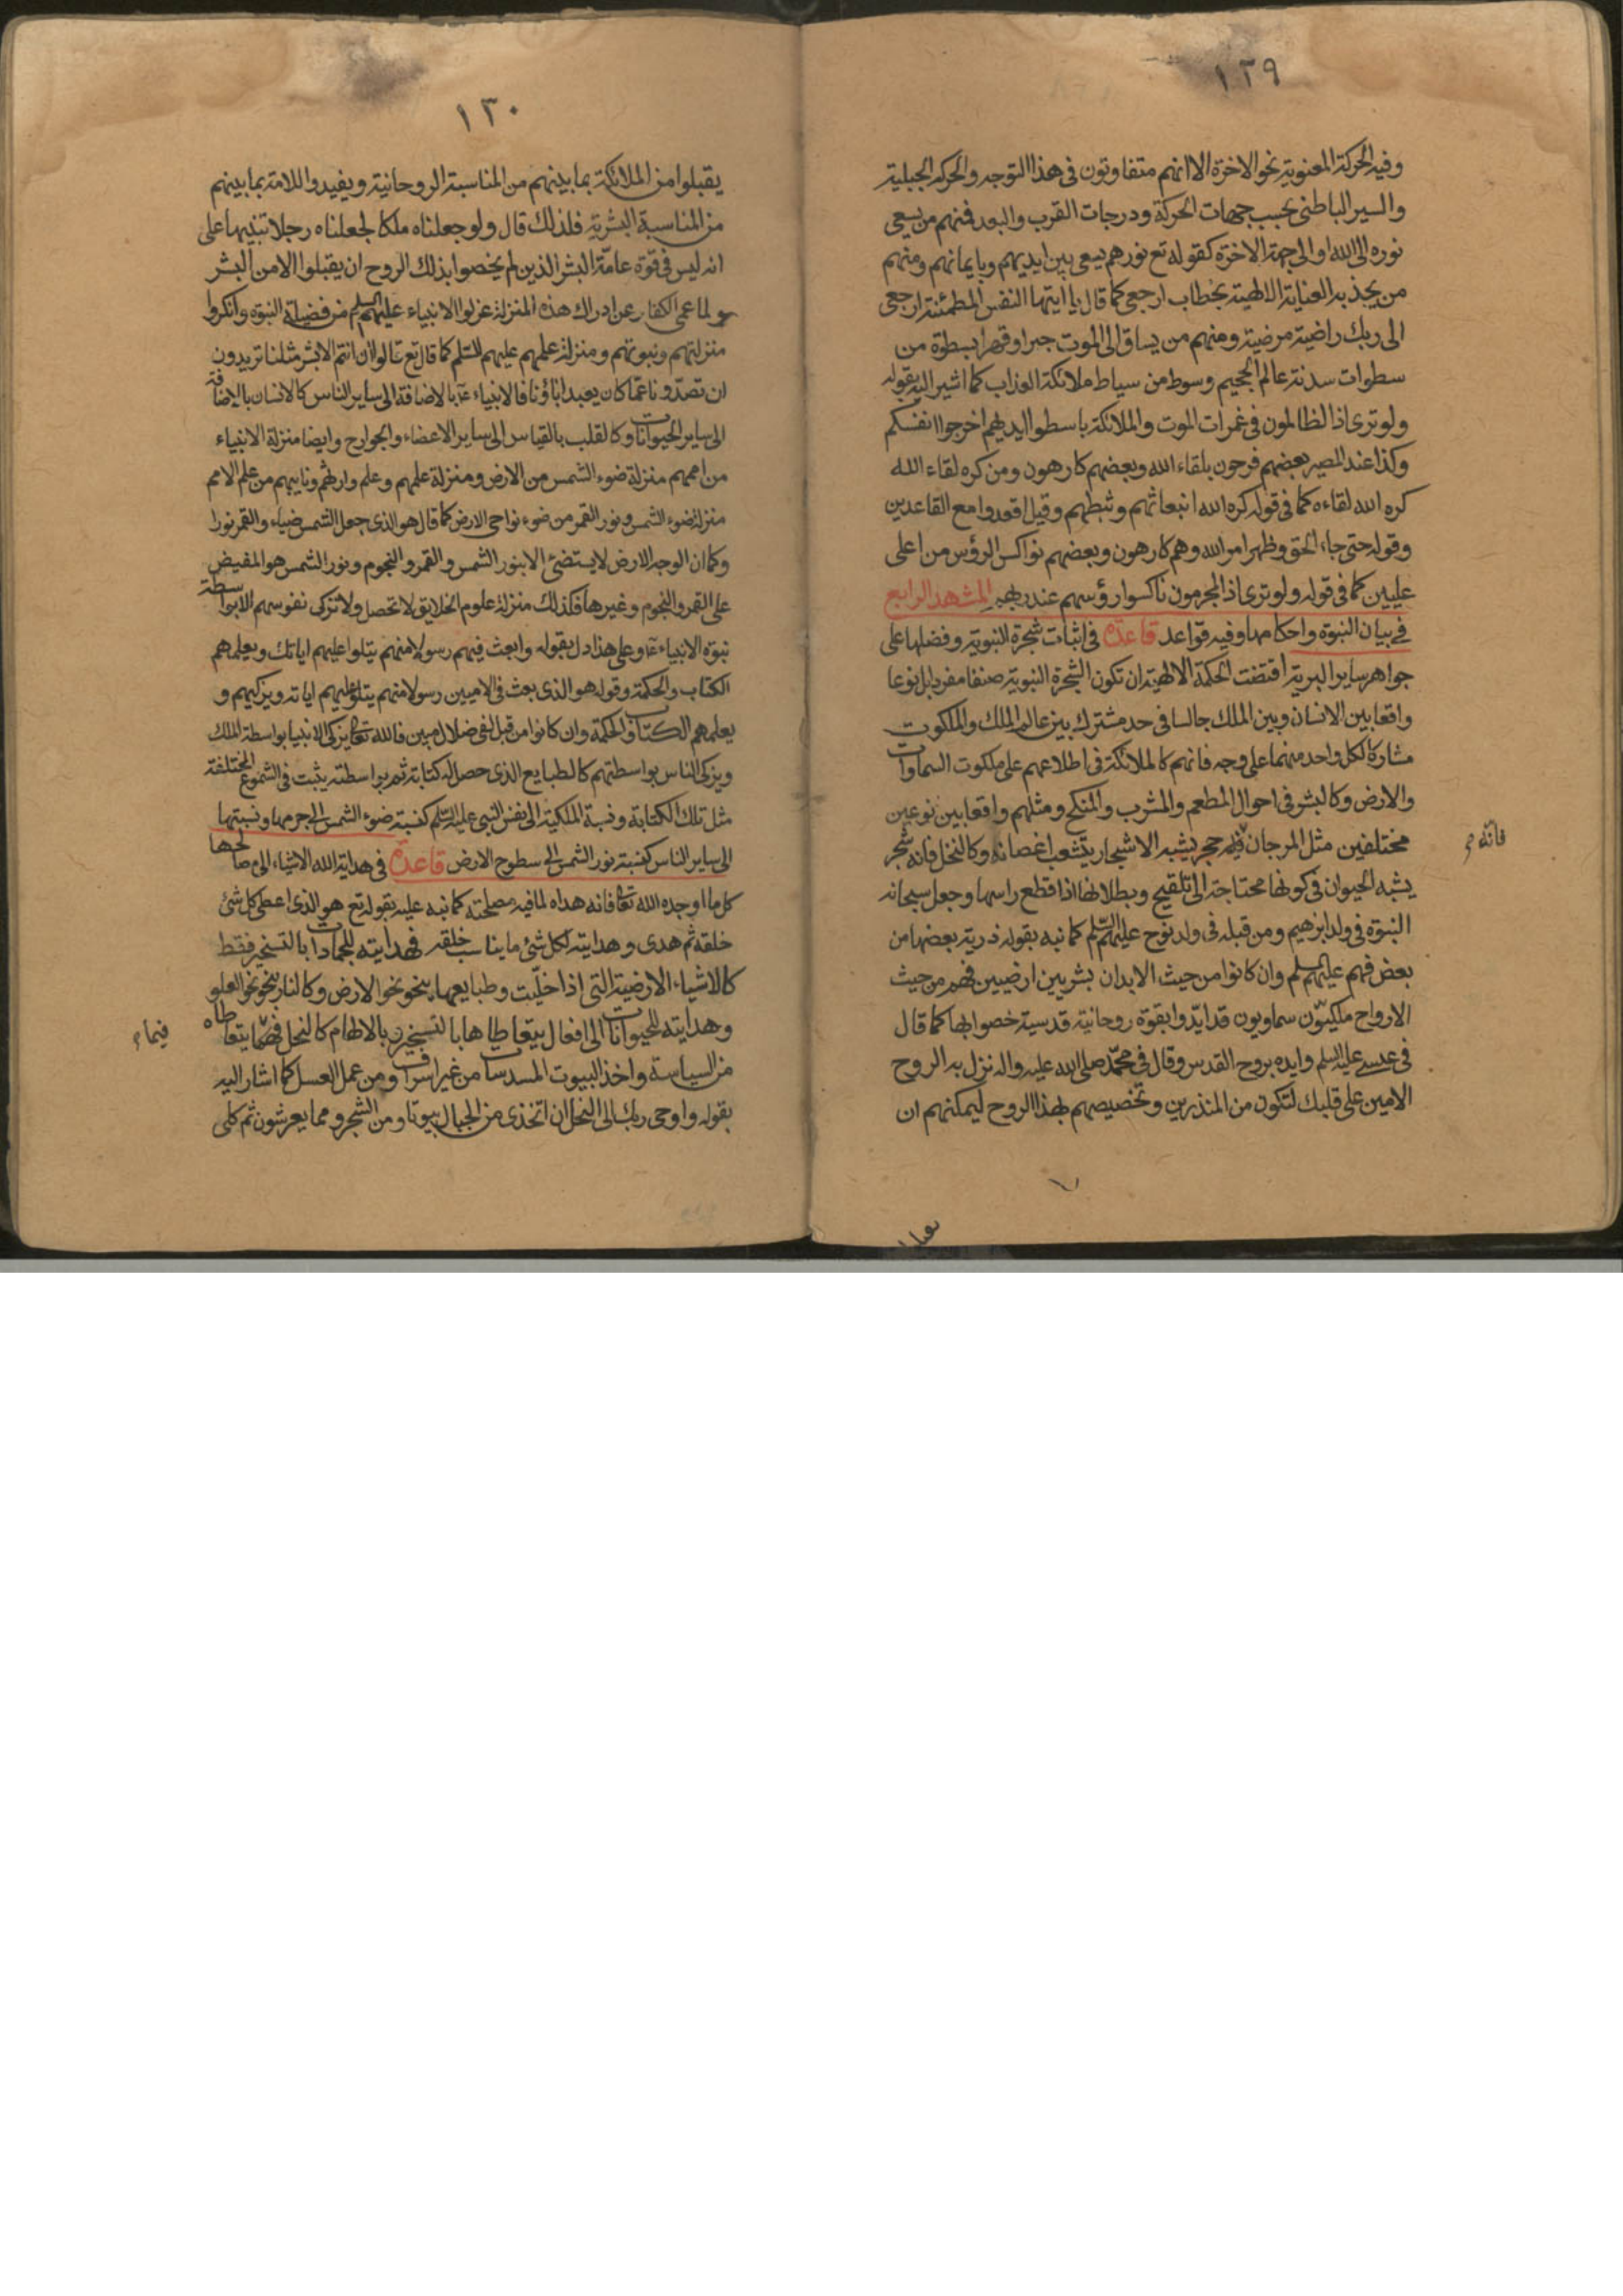 ١٢٩
وفيه الحركة المعنوية نحو الاخرة الا انهم متفاوتون فى هذا التوجه والحركة الجبلية
والسير الباطنى بحسب جهات الحركة ودرجات القرب والبعد فمنهم من يسعى
نوره الى الله او الى جهة الاخرة كقوله تع نورهم يسعى بين ايديهم وبايمانهم ومنهم
من يجذبه العناية الالهية بخطاب ارجعى كما قال يا ايتها النفس المطمئنة ارجعى
الى ربك راضية مرضية ومنهم من يساق الى الموت جبرا وقهرا بسطوة من
سطوات سدنة عالم الجحيم وسوط من سياط ملائكة العذاب كما اشير اليه بقوله
ولو ترى اذ الظالمون فى غمرات الموت والملائكة باسطوا ايديهم اخرجوا انفسكم
وكذا عند المصير بعضهم فرحون بلقاء الله وبعضهم كارهون ومن كره لقاء الله
كره الله لقاءه كما فى قوله كره الله انبعاثهم وثبطهم وقيل اقعدوا مع القاعدين
وقوله حتى جاء الحق وظهر امر الله وهم كارهون وبعضهم نواكس الرؤس من اعلى
عليين كما فى قوله ولو ترى اذ المجرمون ناكسوا رؤسهم عند ربهم المشهد الرابع
فى بيان النبوة واحكامها وفيه قواعد قاعدة فى اثبات شجرة النبوية وفضلها على
جواهر ساير البرية اقتضت الحكمة الالهية ان تكون الشجرة النبوية صنفا مفردا بل نوعا
واقعا بين الانسان وبين الملك جالسا فى حد مشترك بين عالم الملك والملكوت
مشاركا لكل واحد منهما على وجه فانهم كالملائكة فى اطلاعهم على ملكوت السماوات
والارض وكالبشر فى احوال المطعم والمشرب والمنكح ومثلهم واقعا بين نوعين
مختلفين مثل المرجان حجر يشبه الاشجار يتشعب اغصانه وكالنخل فانه شجر
فانه
يشبه الحيوان فى كونها محتاجة الى تلقيح وبطلانها اذا قطع راسها وجعل سبحانه
النبوة فى ولد ابرهيم ومن قبله فى ولد نوح عليهم السلم كما نبه بقوله ذرية بعضها من
بعض فهم عليهم السلم وان كانوا من حيث الابدان بشريين ارضيين فهم من حيث
الارواح ملكيّون سماويون قد ايّدوا بقوة روحانية قدسية خصوا بها كما قال
فى عيسى عليه السلم وايده بروح القدس وقال فى محمّد صلى الله عليه واله نزل به الروح
الامين على قلبك لتكون من المنذرين وتخصيصهم بهذا الروح ليمكنهم ان
١٣٠
يقبلوا من الملائكة بما بينهم من المناسبة الروحانية ويفيدوا للامة بما بينهم
من المناسبة البشرية فلذلك قال ولو جعلناه ملكا لجعلناه رجلا تنبيها على
انه ليس فى قوة عامّة البشر الذين لم يخصوا بذلك الروح ان يقبلوا الا من البشر
ولما عمى الكفار عن ادراك هذه المنزلة عزلوا الانبياء عليهم السلم من فضيلة النبوة وانكروا
منزلتهم ونبوتهم ومنزلة علمهم عليهم السلم كما قال تع قالوا ان انتم الا بشر مثلنا تريدون
ان تصدّونا عمّا كان يعبد اباؤنا فالانبياء ء بالاضافة الى ساير الناس كالانسان بالاضافة
الى ساير الحيوانات وكالقلب بالقياس الى ساير الاعضاء والجوارح وايضا منزلة الانبياء
من اممهم منزلة ضوء الشمس من الارض ومنزلة علمهم وعلم وارثهم ونايبهم من علم الامم
منزلة ضوء الشمس ونور القمر من ضوء نواحى الارض كما قال هو الذى جعل الشمس ضياء والقمر نورا
وكما ان الوجه الارض لا يستضئ الا بنور الشمس والقمر والنجوم ونور الشمس هو المفيض
على القمر والنجوم وغيرها فكذلك منزلة علوم الخلايق لا تحصل ولا تزكى نفوسهم الا بواسطة
نبوة الانبياء ء وعلى هذا دل بقوله وابعث فيهم رسولا منهم يتلوا عليهم اياتك ويعلمهم
الكتاب والحكمة وقوله هو الذى بعث فى الاميين رسولا منهم يتلو عليهم اياته ويزكيهم و
يعلمهم الكتاب والحكمة وان كانوا من قبل لفى ضلال مبين فالله تعالى يزكى الانبيا بواسطة الملك
ويزكى الناس بواسطتهم كالطبايع الذى حصل له كتابة ثم بواسطته يثبت فى الشموع المختلفة
مثل تلك الكتابة ونسبة الملكية الى نفس النبى عليه السّلم كنسبة ضوء الشمس الى جرمها ونسبتها
الى ساير الناس كنسبة نور الشمس الى سطوح الارض قاعدة فى هداية الله الاشياء الى مصالحها
كل ما اوجده الله تعالى فانه هداه لما فيه مصلحته كما نبه عليه بقوله تع هو الذى اعطى كل شئ
خلقه ثم هدى وهدايته لكل شئ ما يناسب خلقه فهدايته للجمادات بالتسخير فقط
كالاشياء الارضية التى اذا خليّت وطبايعها ينحو نحو الارض وكالنار ينحو نحو العلو
وهدايته للحيوانات الى افعال يتعاطاها بالتسخير بالالهام كالنحل فيما يتعاطاه
فيما
من السياسة واخذ البيوت المسدسات من غير اسراف ومن عمل العسل كما اشار اليه
بقوله واوحى ربك الى النحل ان اتخذى من الجبال بيوتا ومن الشجر ومما يعرشون ثم كلى